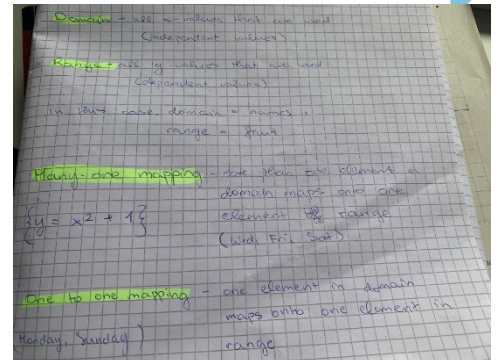 Domain - all x-values that are used
(independent values)
Range - all y-values that are used
(dependent values)
In case, domain = names,
range = fruit
Many-one mapping - more than one element in
domain maps onto one
element of range
{y = x² + 1}
(Wed, Fri, Sat)
One to one mapping - one element in domain
maps onto one element in
range
(Monday, Sunday)